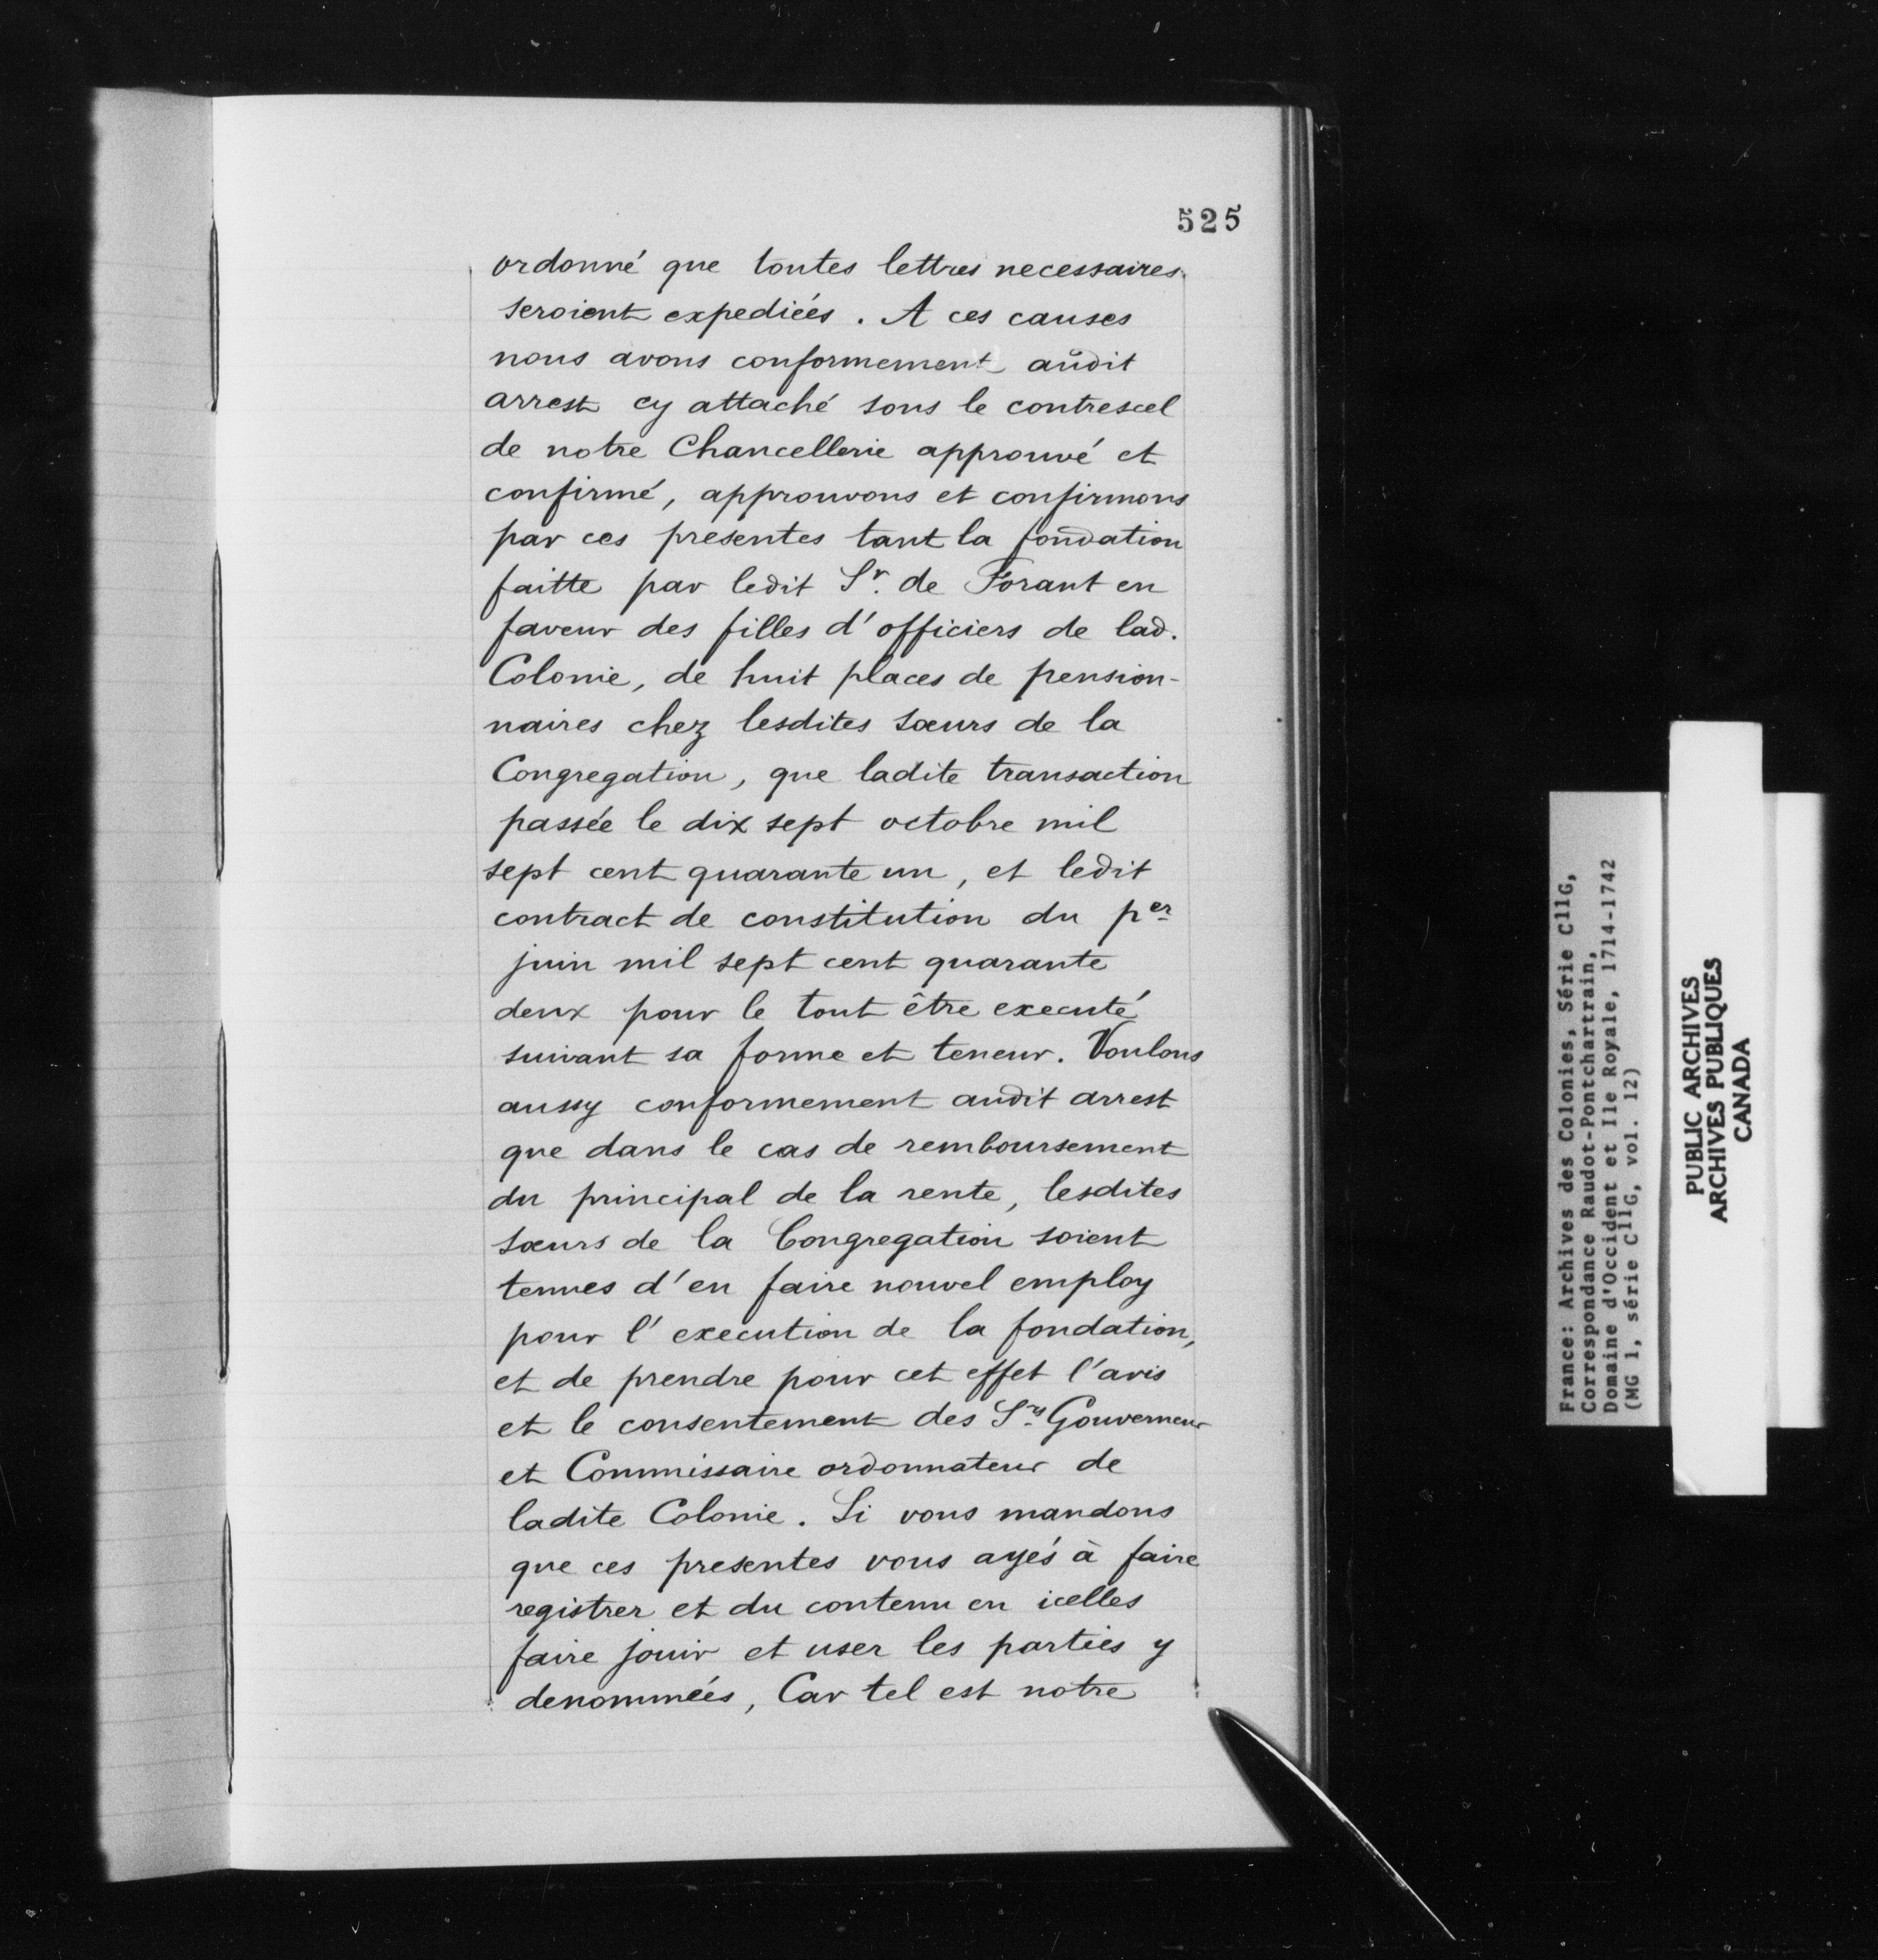 525
ordonné que toutes lettres necessaires
seroient expediées. A ces causes
nous avons conformement audit
arrest cy attaché sous le contrescel
de notre Chancellerie approuvé et
confirmé, approuvons et confirmons
par ces presentes tant la fondation
faitte par ledit Sr. de Forant en
faveur des filles d'officiers de lad.
Colonie, de huit places de pension-
naires chez lesdites sœurs de la
Congregation, que ladite transaction
passée le dix sept octobre mil
sept cent quarante un, et ledit
contract de constitution du per
juin mil sept cent quarante
deux pour le tout être executé
suivant sa forme et teneur. Voulons
aussy conformement audit arrest
que dans le cas de remboursement
du principal de la rente, lesdites
sœurs de la Congregation soient
tenues d'en faire nouvel employ
pour l'execution de la fondation,
et de prendre pour cet effet l'avis
et le consentement des Srs Gouverneur
et Commissaire ordonnateur de
ladite Colonie. Si vous mandons
que ces presentes vous ayés à faire
registrer et du contenu en icelles
faire jouir et user les parties y
denommées, Car tel est notre
France: Archives des Colonies, Série C11G,
Correspondance Raudot-Pontchartrain,
Domaine d'Occident et Ile Royale, 1714-1742
(MG 1, série C11G, vol. 12)
PUBLIC ARCHIVES
ARCHIVES PUBLIQUES
CANADA